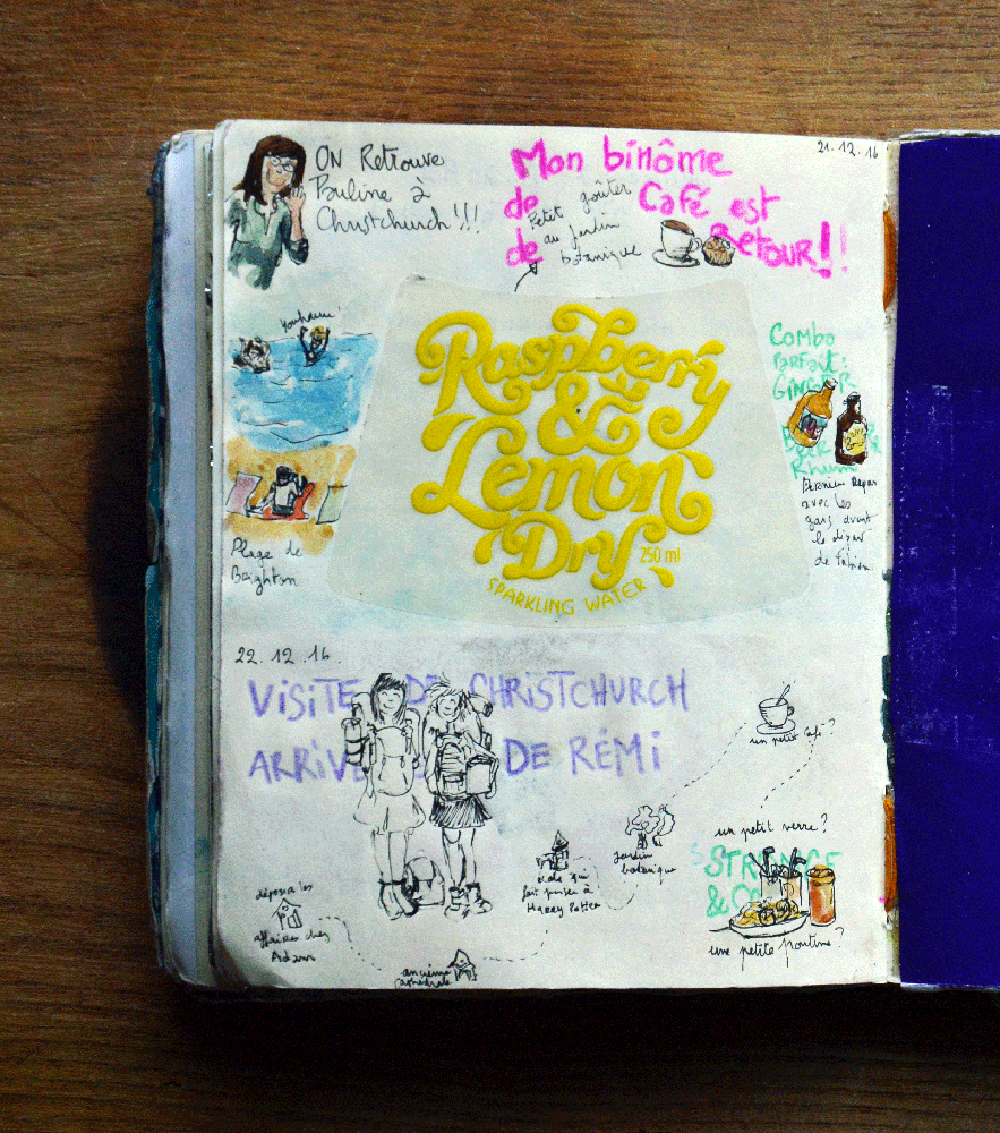 21.12.16
ON Retrouve
Pauline à
Christchurch !!!
Mon binôme
de Café est
de RETOUR!!
Petit goûter
au jardin
botanique
Youhouu!
Plage de
Brighton
Raspberry
&
Lemon
Dry
250 ml
SPARKLING WATER
Combo
Parfait:
GINGER
BEER &
Rhum
Dernier Repas
avec les
gars avant
le départ
de Fabian
22.12.16.
VISITE DE CHRISTCHURCH
ARRIVÉE DE RÉMI
un petit café?
un petit verre?
STRANGE
& CO
une petite poutine?
jardin
botanique
école qui
fait penser à
Harry Potter
ancienne
cathédrale
dépose les
affaires chez